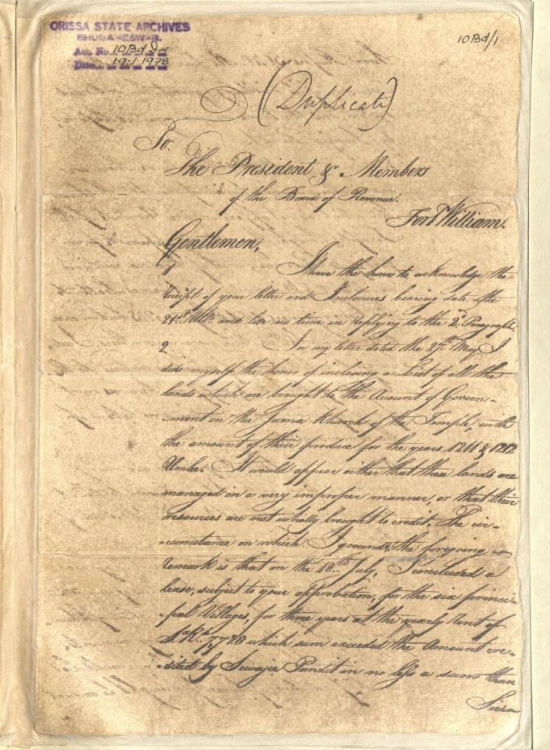 ORISSA STATE ARCHIVES
BHUBANESWAR.
Acc. No. 10 Bd Doc
Date 19.1.1978
10 Bd/1
(Duplicate)
To.
The President & Members
of the Board of Revenue.
Fort William.
Gentlemen,
1 I have the honor to acknowledge the
receipt of your letter and Inclosures bearing date the
21st Ulto and lose no time in replying to the 2d Paragraph.
2 In my letter dated the 27th May I
did myself the honor of inclosing a List of all the
lands which are brought to the Account of Govern-
ment in the Juma Khurch of the Temple, with
the amount of their produce for the years 1211 & 1212
Umlee. It would appear either that these lands are
managed in a very improper manner, or that their
resources are not wholly brought to credit. The cir-
cumstance on which I ground the foregoing
remark is that on the 18th July, I concluded a
lease, subject to your approbation, for the six princi-
pal Villages, for three years at the yearly Rent of
Sa Rs 7780 which sum exceeded the Amount cre-
dited by Sewajee Pundit in no less a sum than
Sicca